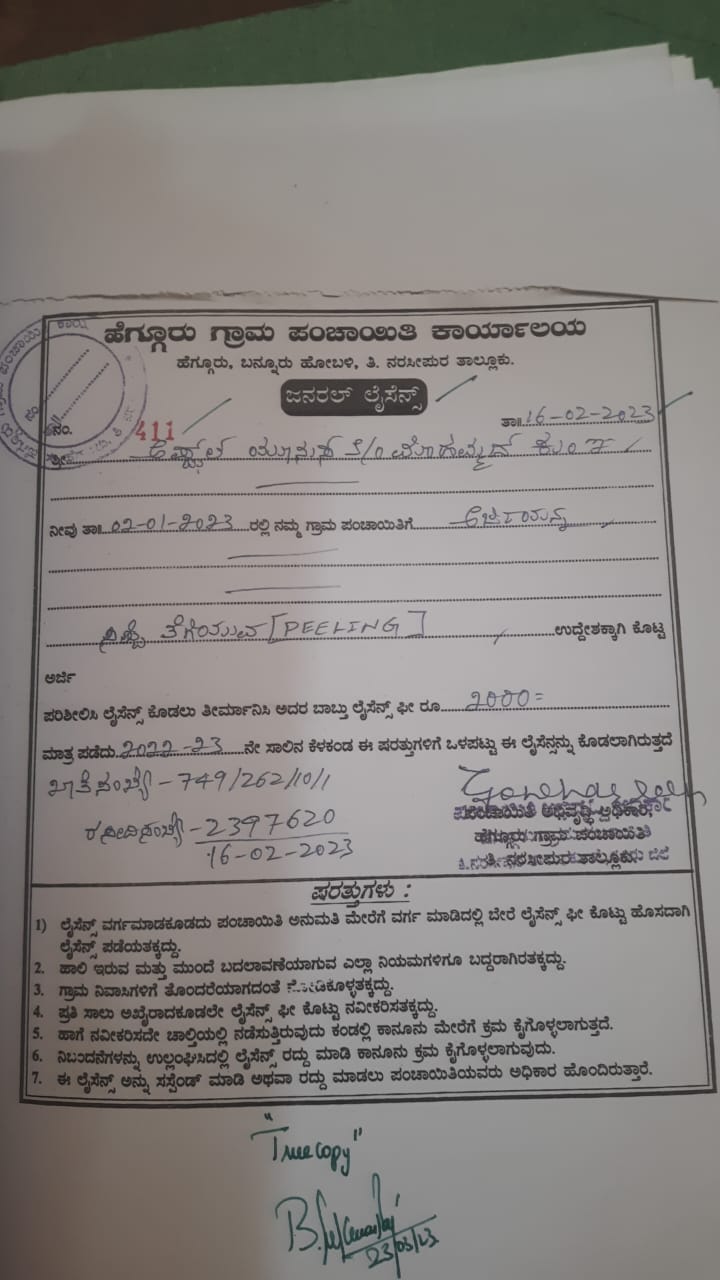 ಹೆಗ್ಗೂರು ಗ್ರಾಮ ಪಂಚಾಯಿತಿ ಕಾರ್ಯಾಲಯ
ಹೆಗ್ಗೂರು, ಬನ್ನೂರು ಹೋಬಳಿ, ತಿ. ನರಸೀಪುರ ತಾಲ್ಲೂಕು.
ಜನರಲ್ ಲೈಸೆನ್ಸ್
ನಂ. 411 ತಾ॥ 16-02-2023
ಶ್ರೀ ಯೂನುಸ್ S/o ಮೊಹಮ್ಮದ್
ನೀವು ತಾ॥ 02-01-2023 ರಲ್ಲಿ ನಮ್ಮ ಗ್ರಾಮ ಪಂಚಾಯಿತಿಗೆ
ಸಿಪ್ಪೆ ತೆಗೆಯುವ [PEELING] ಉದ್ದೇತಕ್ಕಾಗಿ ಕೊಟ್ಟ
ಅರ್ಜಿ
ಪರಿಶೀಲಿಸಿ ಲೈಸೆನ್ಸ್ ಕೊಡಲು ತೀರ್ಮಾನಿಸಿ ಅದರ ಬಾಬ್ತು ಲೈಸೆನ್ಸ್ ಫೀ ರೂ 2000=
ಮಾತ್ರ ಪಡೆದು 2022-23 ನೇ ಸಾಲಿನ ಕೆಳಕಂಡ ಈ ಷರತ್ತುಗಳಿಗೆ ಒಳಪಟ್ಟು ಈ ಲೈಸೆನ್ಸನ್ನು ಕೊಡಲಾಗಿರುತ್ತದೆ
ಖಾತೆ ಸಂಖ್ಯೆ - 749/262/10/1
ರಸೀದಿ ಸಂಖ್ಯೆ - 2397620
16-02-2023
ಪಂಚಾಯಿತಿ ಅಭಿವೃದ್ಧಿ ಅಧಿಕಾರಿ,
ಹೆಗ್ಗೂರು ಗ್ರಾಮ ಪಂಚಾಯಿತಿ
ತಿ. ನರಸೀಪುರ ತಾಲ್ಲೂಕು
ಷರತ್ತುಗಳು :
1) ಲೈಸೆನ್ಸ್ ವರ್ಗಮಾಡಕೂಡದು ಪಂಚಾಯಿತಿ ಅನುಮತಿ ಮೇರೆಗೆ ವರ್ಗ ಮಾಡಿದಲ್ಲಿ ಬೇರೆ ಲೈಸೆನ್ಸ್ ಫೀ ಕೊಟ್ಟು ಹೊಸದಾಗಿ
ಲೈಸೆನ್ಸ್ ಪಡೆಯತಕ್ಕದ್ದು.
2. ಹಾಲಿ ಇರುವ ಮತ್ತು ಮುಂದೆ ಬದಲಾವಣೆಯಾಗುವ ಎಲ್ಲಾ ನಿಯಮಗಳಿಗೂ ಬದ್ದರಾಗಿರತಕ್ಕದ್ದು.
3. ಗ್ರಾಮ ನಿವಾಸಿಗಳಿಗೆ ತೊಂದರೆಯಾಗದಂತೆ ನೋಡಿಕೊಳ್ಳತಕ್ಕದ್ದು.
4. ಪ್ರತಿ ಸಾಲು ಅಖೈರಾದಕೂಡಲೇ ಲೈಸೆನ್ಸ್ ಫೀ ಕೊಟ್ಟು ನವೀಕರಿಸತಕ್ಕದ್ದು.
5. ಹಾಗೆ ನವೀಕರಿಸದೇ ಚಾಲ್ತಿಯಲ್ಲಿ ನಡೆಸುತ್ತಿರುವುದು ಕಂಡಲ್ಲಿ ಕಾನೂನು ಮೇರೆಗೆ ಕ್ರಮ ಕೈಗೊಳ್ಳಲಾಗುತ್ತದೆ.
6. ನಿಬಂದನೆಗಳನ್ನು ಉಲ್ಲಂಘಿಸಿದಲ್ಲಿ ಲೈಸೆನ್ಸ್ ರದ್ದು ಮಾಡಿ ಕಾನೂನು ಕ್ರಮ ಕೈಗೊಳ್ಳಲಾಗುವುದು.
7. ಈ ಲೈಸೆನ್ಸ್ ಅನ್ನು ಸಸ್ಪೆಂಡ್ ಮಾಡಿ ಅಥವಾ ರದ್ದು ಮಾಡಲು ಪಂಚಾಯಿತಿಯವರು ಅಧಿಕಾರ ಹೊಂದಿರುತ್ತಾರೆ.
"True copy"
23/03/23